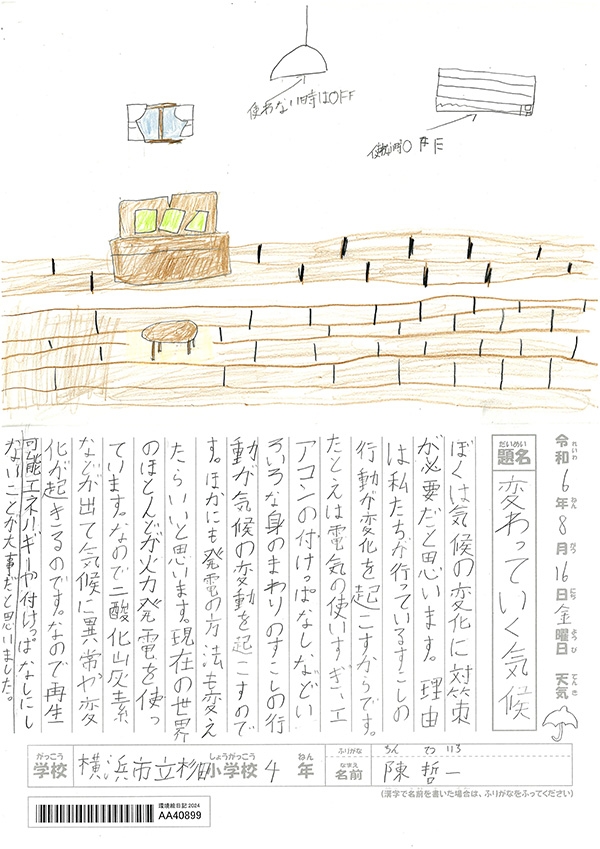 使わない時はOFF
令和6年8月16日金曜日 天気
れいわ ねん がつ にち ようび てんき
だいめい
題名
変わっていく気候
ぼくは気候の変化に対策
が必要だと思います。理由
は私たちが行っているすこしの
行動が変化を起こすからです。
たとえは電気の使いすぎ、エ
アコンの付けっぱなしなどい
ろいろな身のまわりのすこしの行
動が気候の変動を起こすので
す。ほかにも発電の方法も変え
たらいいと思います。現在の世界
のほとんどが火力発電を使っ
ています。なので二酸化炭素
などが出て気候に異常や変
化が起きるのです。なので再生
可能エネルギーや付けっぱなしにし
ないことが大事だと思いました。
がっこう しょうがっこう ねん
学校 横浜市立杉田小学校 4年
ふりがな ちん
なまえ
名前 陳哲一
(漢字で名前を書いた場合は、ふりがなをふってください)
環境絵日記 2024
AA40899